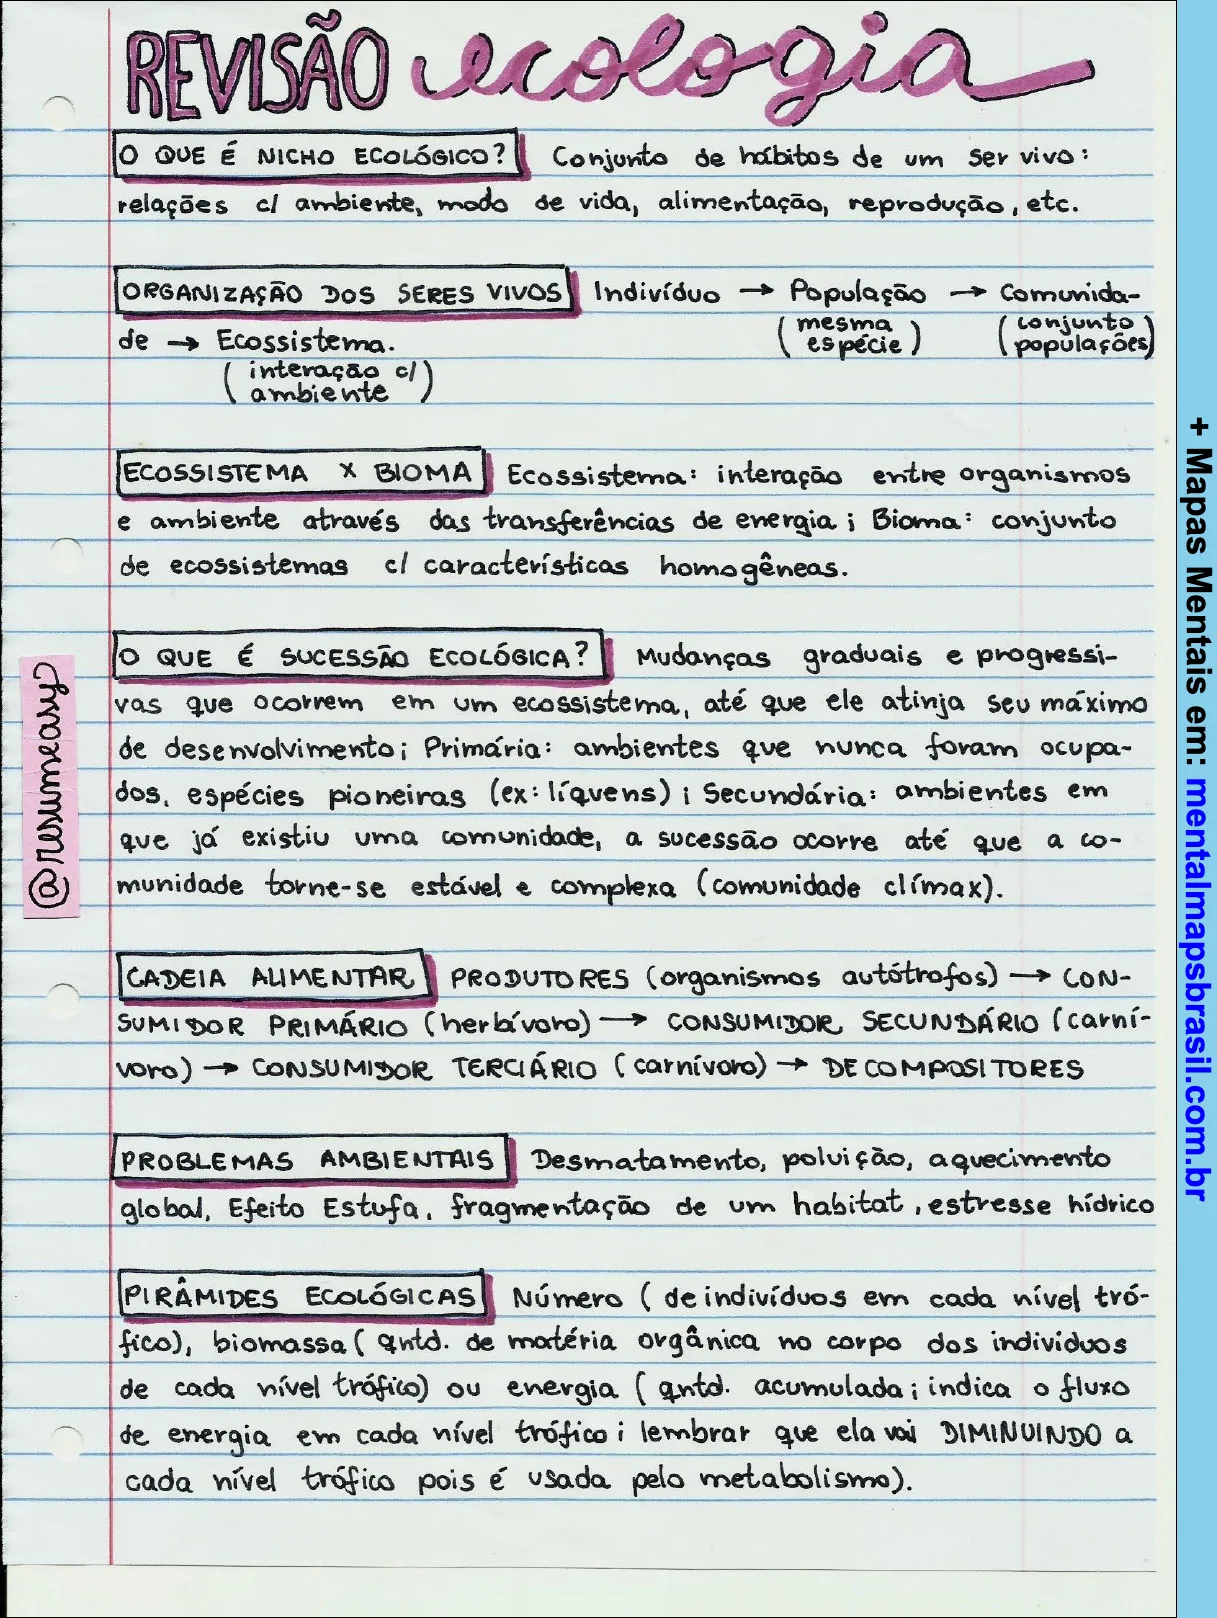 REVISÃO ecologia
O QUE É NICHO ECOLÓGICO? Conjunto de hábitos de um ser vivo:
relações c/ ambiente, modo de vida, alimentação, reprodução, etc.
ORGANIZAÇÃO DOS SERES VIVOS Indivíduo → População → Comunida-
(mesma espécie) (conjunto populações)
de → Ecossistema.
(interação c/ ambiente)
ECOSSISTEMA X BIOMA Ecossistema: interação entre organismos
e ambiente através das transferências de energia; Bioma: conjunto
de ecossistemas c/ características homogêneas.
O QUE É SUCESSÃO ECOLÓGICA? Mudanças graduais e progressi-
vas que ocorrem em um ecossistema, até que ele atinja seu máximo
de desenvolvimento; Primária: ambientes que nunca foram ocupa-
dos, espécies pioneiras (ex: líquens); Secundária: ambientes em
que já existiu uma comunidade, a sucessão ocorre até que a co-
munidade torne-se estável e complexa (comunidade clímax).
CADEIA ALIMENTAR PRODUTORES (organismos autótrofos) → CON-
SUMIDOR PRIMÁRIO (herbívoro) → CONSUMIDOR SECUNDÁRIO (carní-
voro) → CONSUMIDOR TERCIÁRIO (carnívoro) → DECOMPOSITORES
PROBLEMAS AMBIENTAIS Desmatamento, poluição, aquecimento
global, Efeito Estufa, fragmentação de um habitat, estresse hídrico
PIRÂMIDES ECOLÓGICAS Número (de indivíduos em cada nível tró-
fico), biomassa (qntd. de matéria orgânica no corpo dos indivíduos
de cada nível trófico) ou energia (qntd. acumulada; indica o fluxo
de energia em cada nível trófico; lembrar que ela vai DIMINUINDO a
cada nível trófico pois é usada pelo metabolismo).
+ Mapas Mentais em: mentalmapsbrasil.com.br